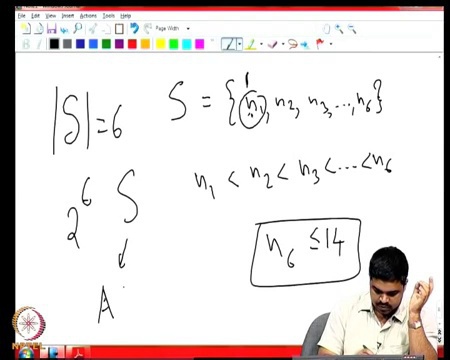 File Edit View Insert Actions Tools Help
Page Width
|S| = 6
S = {n₁, n₂, n₃, ..., n₆}
1
n₁ < n₂ < n₃ < ... < n₆
2⁶ S
↓
A
n₆ ≤ 14